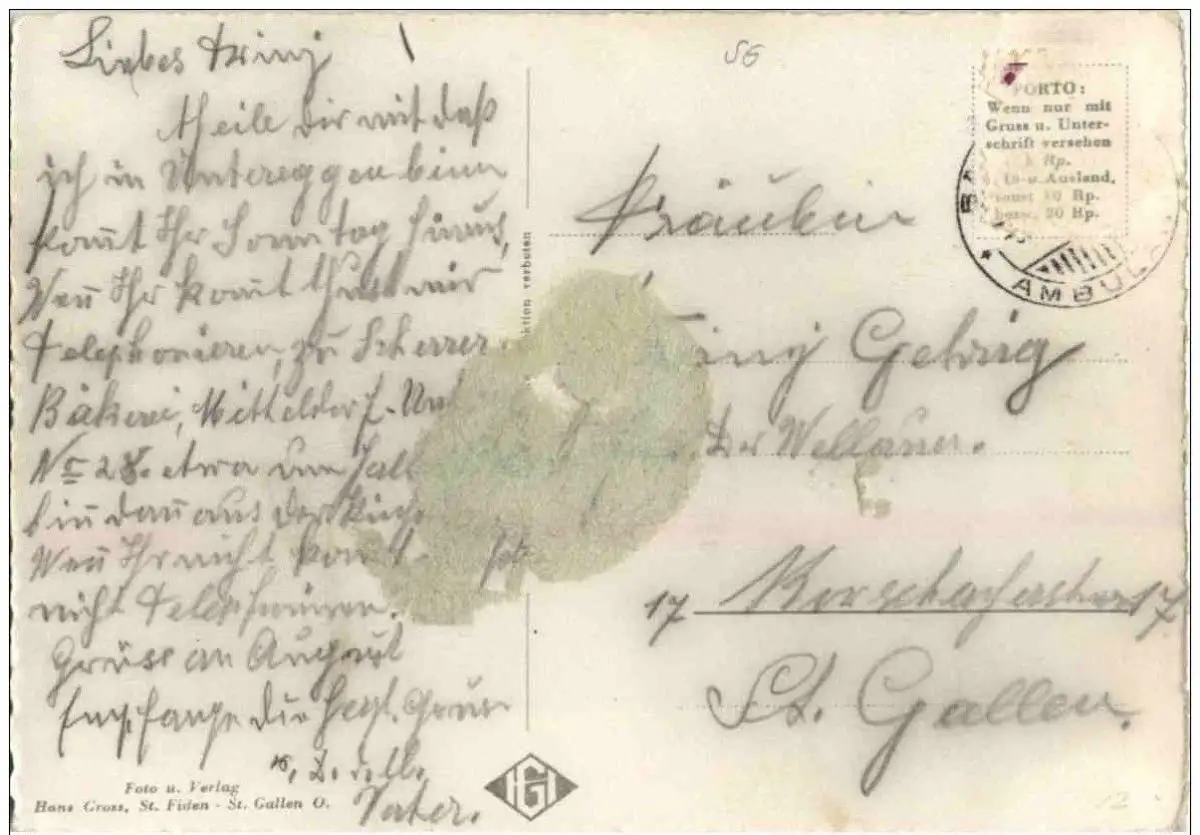 Liebes Trinj
theile dir mit daß
ich in Untereggen binn
komt Ihr Sonntag hinaus,
Wen Ihr komt thut mir
Telephonieren, zu Scherrer
Bäkerei, Mitteldorf-Unt
No 28. etwa um
bin dan aus der
Wen Ihr nicht komt
nicht Telephonieren.
Grüsse an August
Empfange die herzl. Grüsse
Vater.
Foto u. Verlag
Hans Gross, St. Fiden - St. Gallen O.
HG
ktion verboten
56
PORTO:
Wenn nur mit
Gruss u. Unter-
schrift versehen
Rp.
In- u. Ausland,
sonst 10 Rp.
bezw. 20 Rp.
AMBUL
Fräulein
Gehrig
Wellauer.
17 Rorschacherstr 17
St. Gallen.
12